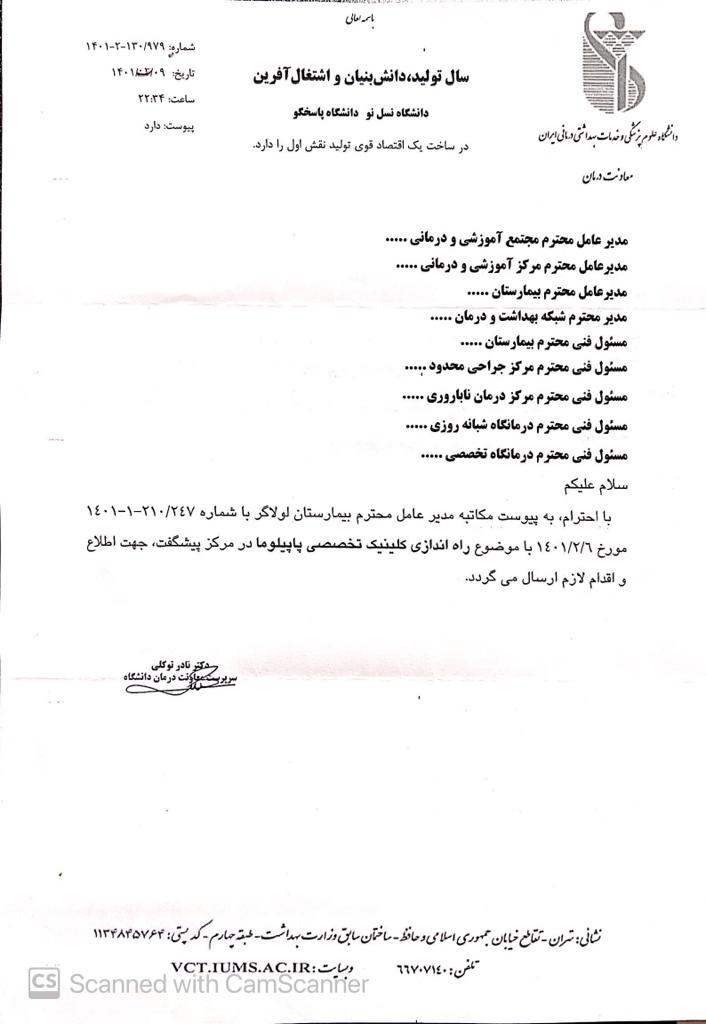 باسمه تعالی
شماره: ۱۴۰۱-۲-۱۳۰/۹۷۹
تاریخ: ۱۴۰۱/۰۲/۰۹
ساعت: ۲۲:۳۴
پیوست: دارد
سال تولید،دانش‌بنیان و اشتغال‌آفرین
دانشگاه نسل نو دانشگاه پاسخگو
در ساخت یک اقتصاد قوی تولید نقش اول را دارد.
دانشگاه علوم پزشکی و خدمات بهداشتی درمانی ایران
معاونت درمان
مدیر عامل محترم مجتمع آموزشی و درمانی .....
مدیرعامل محترم مرکز آموزشی و درمانی .....
مدیرعامل محترم بیمارستان .....
مدیر محترم شبکه بهداشت و درمان .....
مسئول فنی محترم بیمارستان .....
مسئول فنی محترم مرکز جراحی محدود .....
مسئول فنی محترم مرکز درمان ناباروری .....
مسئول فنی محترم درمانگاه شبانه روزی .....
مسئول فنی محترم درمانگاه تخصصی .....
سلام علیکم
با احترام، به پیوست مکاتبه مدیر عامل محترم بیمارستان لولاگر با شماره ۱۴۰۱-۱-۲۱۰/۲۴۷
مورخ ۱۴۰۱/۲/۶ با موضوع راه اندازی کلینیک تخصصی پاپیلوما در مرکز پیشگفت، جهت اطلاع
و اقدام لازم ارسال می گردد.
دکتر نادر توکلی
سرپرست معاونت درمان دانشگاه
نشانی: تهران - تقاطع خیابان جمهوری اسلامی و حافظ - ساختمان سابق وزارت بهداشت - طبقه چهارم - کد پستی: ۱۱۳۴۸۴۵۷۶۴
تلفن: ۶۶۷۰۷۱۴۰ وبسایت: VCT.IUMS.AC.IR
CS Scanned with CamScanner